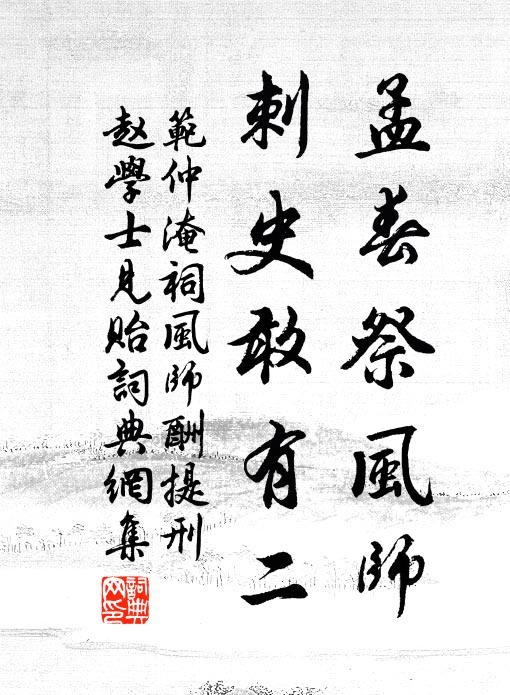 孟春祭風師
刺史敢有二
範仲淹祠風師酬提刑
赵學士見貽詞典網集
詞典
网印